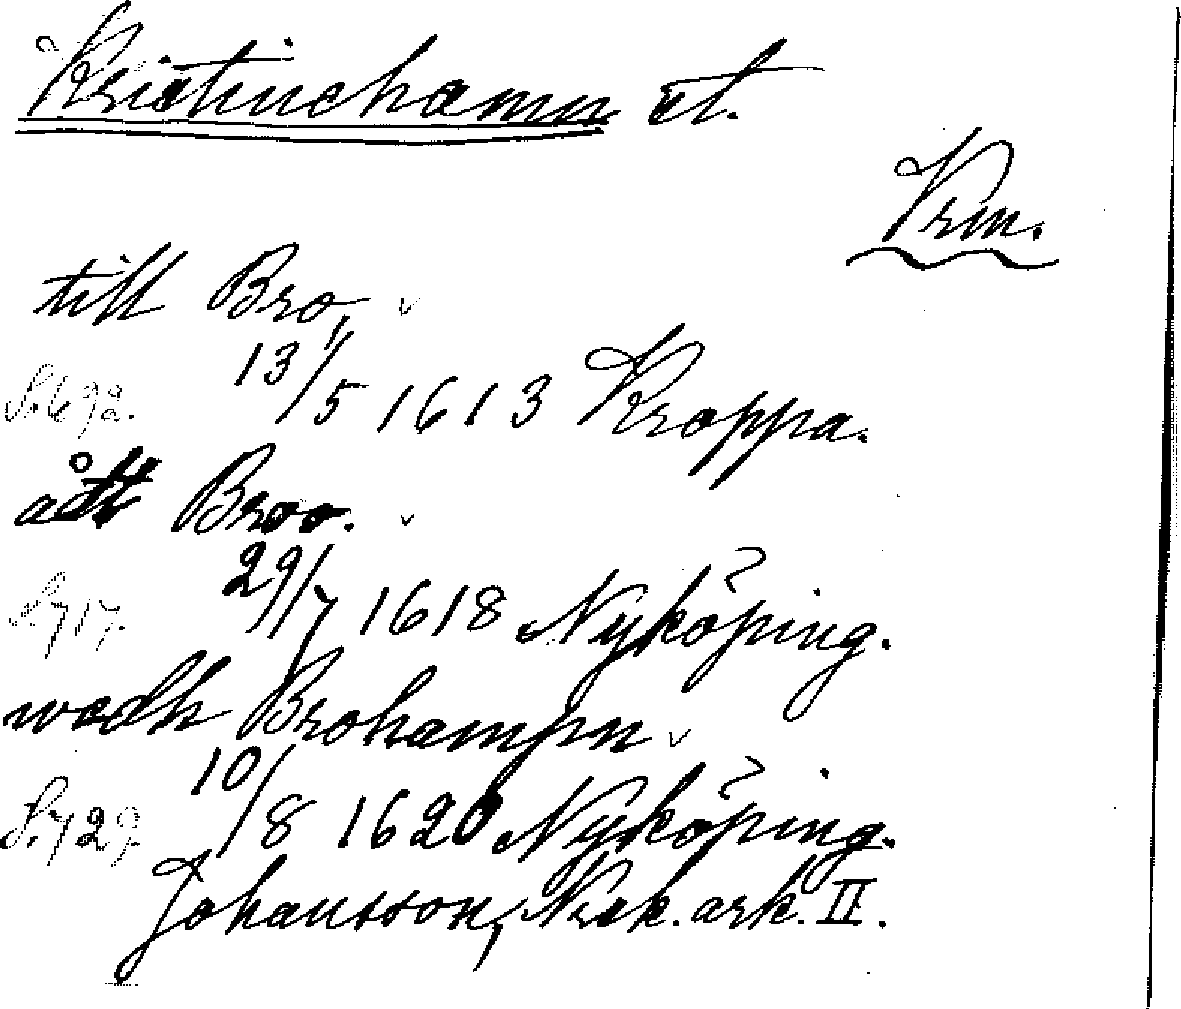 Kristinehamn st.
Vrm.
till Bro,
S. 692. 13/5 1613 Kroppa.
ått Broo.
S. 717. 29/7 1618 Nyköping.
wedh Brohampn
S. 729. 10/8 1620 Nyköping.
Johansson, Nor. ark. II.